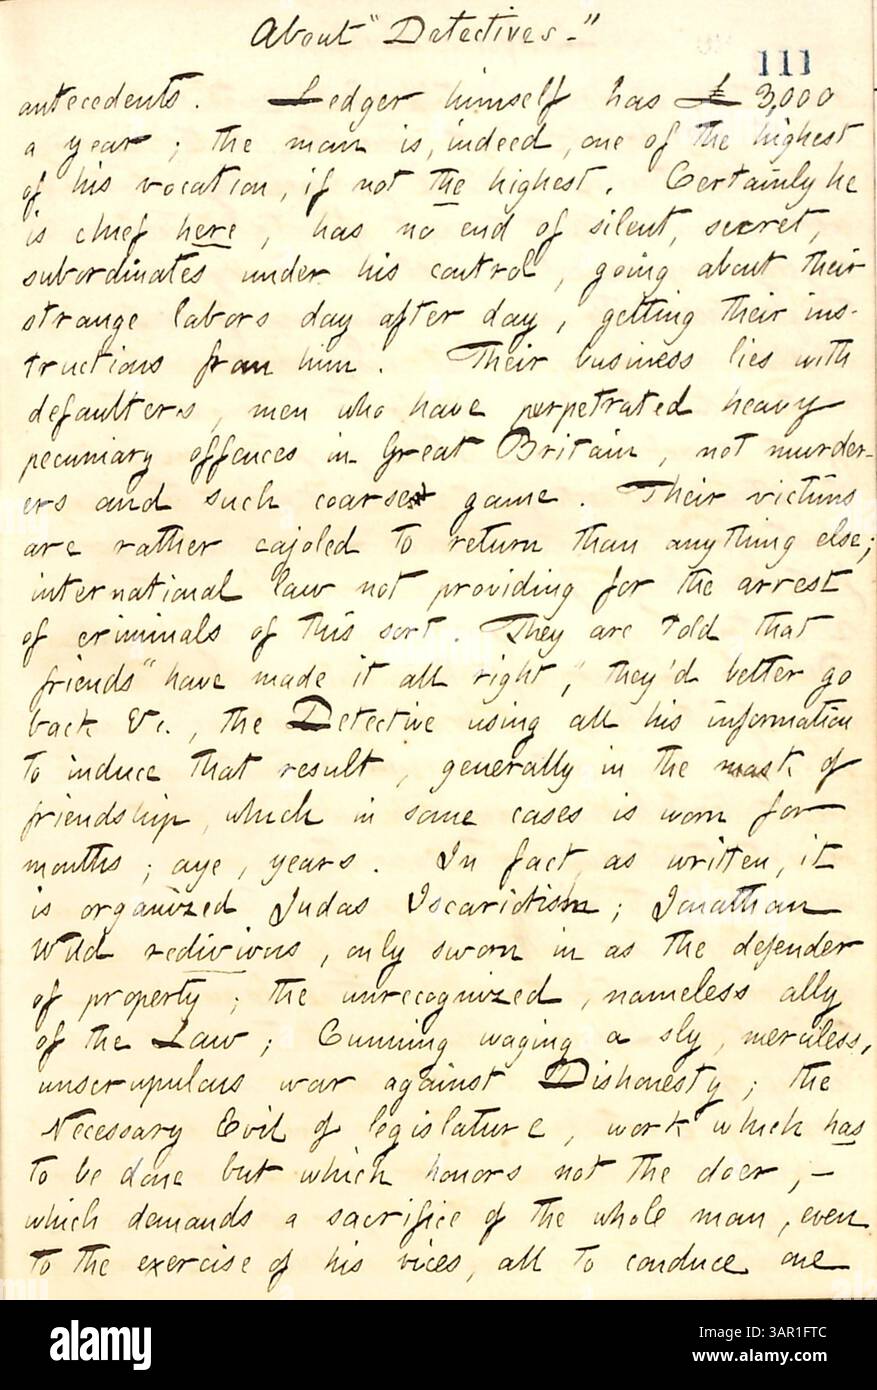 About "Detectives."
111
antecedents. Ledger himself has £ 3,000
a year; the man is, indeed, one of the highest
of his vocation, if not the highest. Certainly he
is chief here, has no end of silent, secret,
subordinates under his control, going about their
strange labors day after day, getting their ins-
tructions from him. Their business lies with
defaulters, men who have perpetrated heavy
pecuniary offences in Great Britain, not murder-
ers and such coarse game. Their victims
are rather cajoled to return than anything else;
international law not providing for the arrest
of criminals of this sort. They are told that
friends "have made it all right," they'd better go
back &c., the Detective using all his information
to induce that result, generally in the mask of
friendship, which in some cases is worn for
months; aye, years. In fact, as written, it
is organized Judas Iscariotism; Jonathan
Wild redivivus, only sworn in as the defender
of property; the unrecognized, nameless ally
of the Law; Cunning waging a sly, merciless,
unscrupulous war against Dishonesty; the
Necessary Evil of legislature, work which has
to be done but which honors not the doer, —
which demands a sacrifice of the whole man, even
to the exercise of his vices, all to conduce one
alamy
Image ID: 3AR1FTC
www.alamy.com